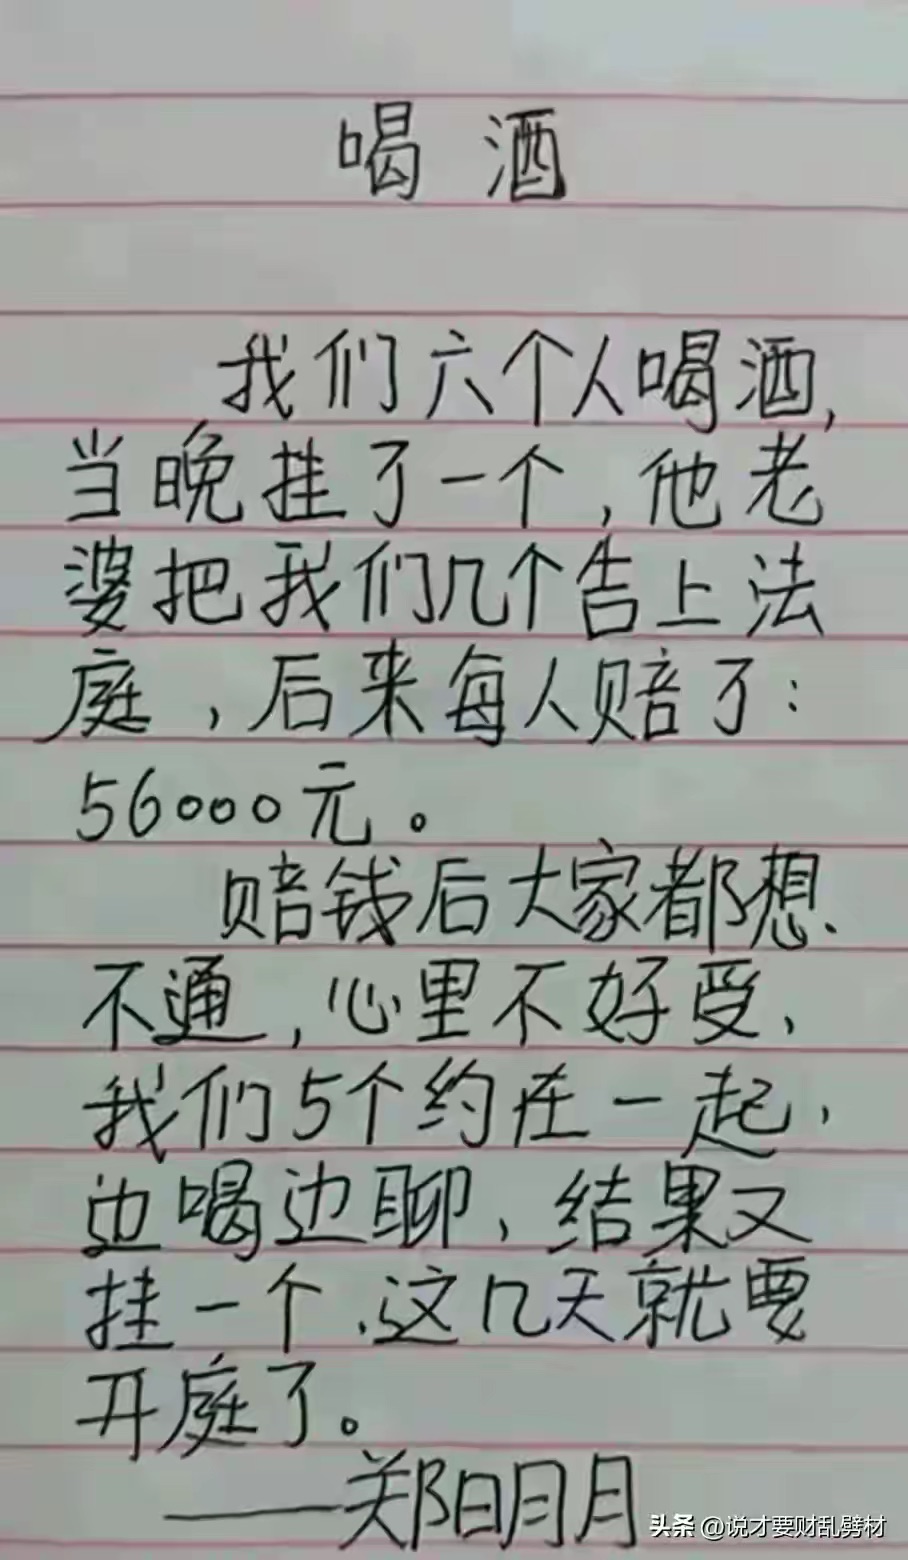 喝酒
我们六个人喝酒,
当晚挂了一个,他老
婆把我们几个告上法
庭,后来每人赔了:
56000元。
赔钱后大家都想
不通,心里不好受、
我们5个约在一起,
边喝边聊、结果又
挂一个、这几天就要
开庭了。
——郑明月
头条 @说才要财乱劈材